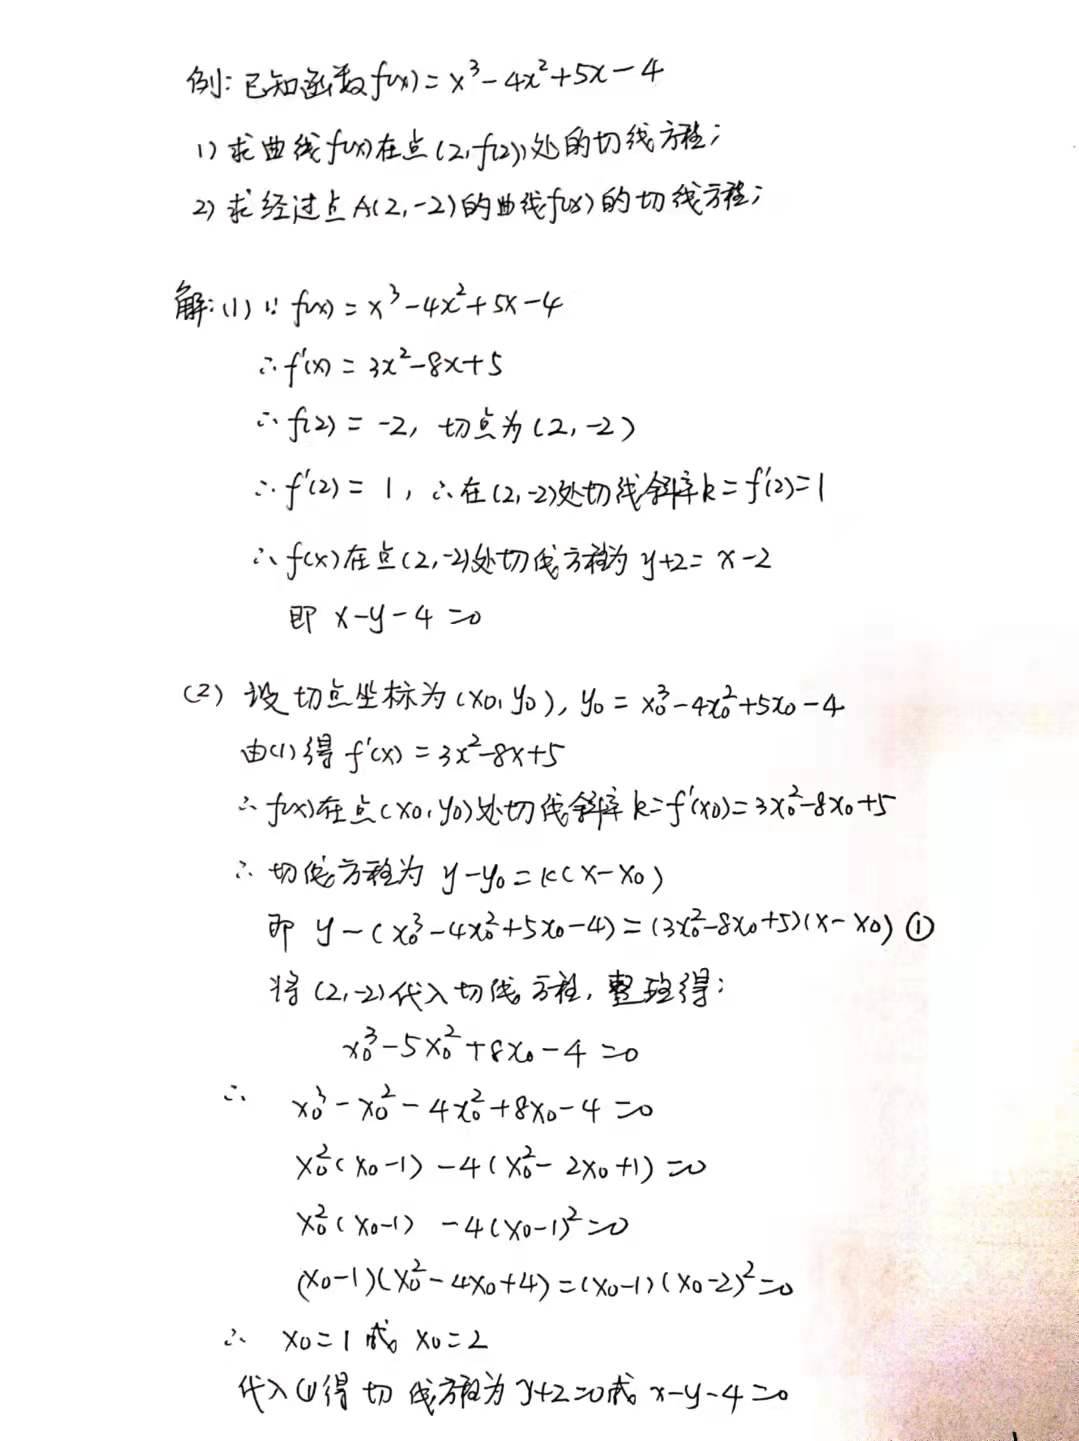 例:已知函数f(x)=x³-4x²+5x-4
1)求曲线f(x)在点(2,f(2))处的切线方程;
2)求经过点A(2,-2)的曲线f(x)的切线方程;
解:(1)∵f(x)=x³-4x²+5x-4
∴f'(x)=3x²-8x+5
∴f(2)=-2,切点为(2,-2)
∴f'(2)=1,∴在(2,-2)处切线斜率k=f'(2)=1
∴f(x)在点(2,-2)处切线方程为y+2=x-2
即 x-y-4=0
(2)设切点坐标为(x₀,y₀),y₀=x₀³-4x₀²+5x₀-4
由(1)得f'(x)=3x²-8x+5
∴f(x)在点(x₀,y₀)处切线斜率k=f'(x₀)=3x₀²-8x₀+5
∴切线方程为y-y₀=k(x-x₀)
即 y-(x₀³-4x₀²+5x₀-4)=(3x₀²-8x₀+5)(x-x₀)①
将(2,-2)代入切线方程,整理得:
x₀³-5x₀²+8x₀-4=0
∴ x₀³-x₀²-4x₀²+8x₀-4=0
x₀²(x₀-1)-4(x₀²-2x₀+1)=0
x₀²(x₀-1)-4(x₀-1)²=0
(x₀-1)(x₀²-4x₀+4)=(x₀-1)(x₀-2)²=0
∴ x₀=1或x₀=2
代入①得切线方程为y+2=0或x-y-4=0